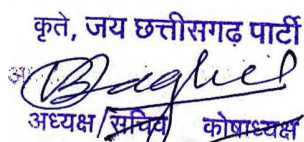 कृते, जय छत्तीसगढ़ पार्टी
Baghel
अध्यक्ष/सचिव कोषाध्यक्ष